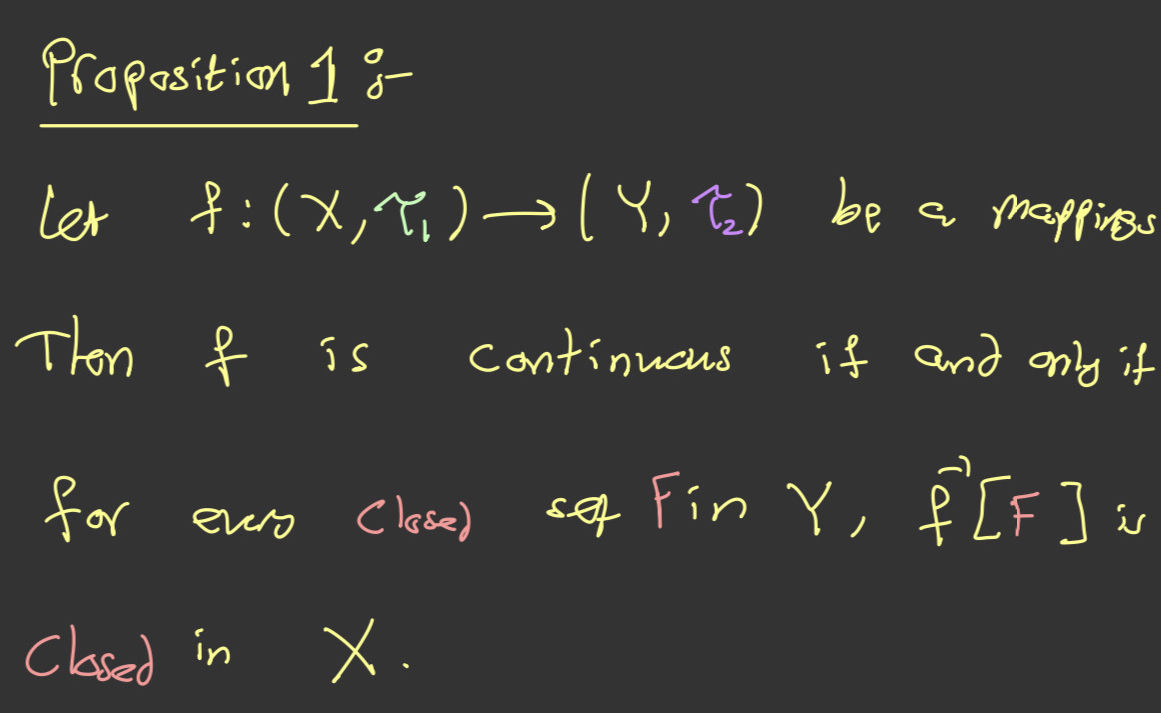 Proposition 1 :-
Let f : (X, τ₁) → (Y, τ₂) be a mapping.
Then f is continuous if and only if
for every closed set F in Y, f⁻¹[F] is
Closed in X.